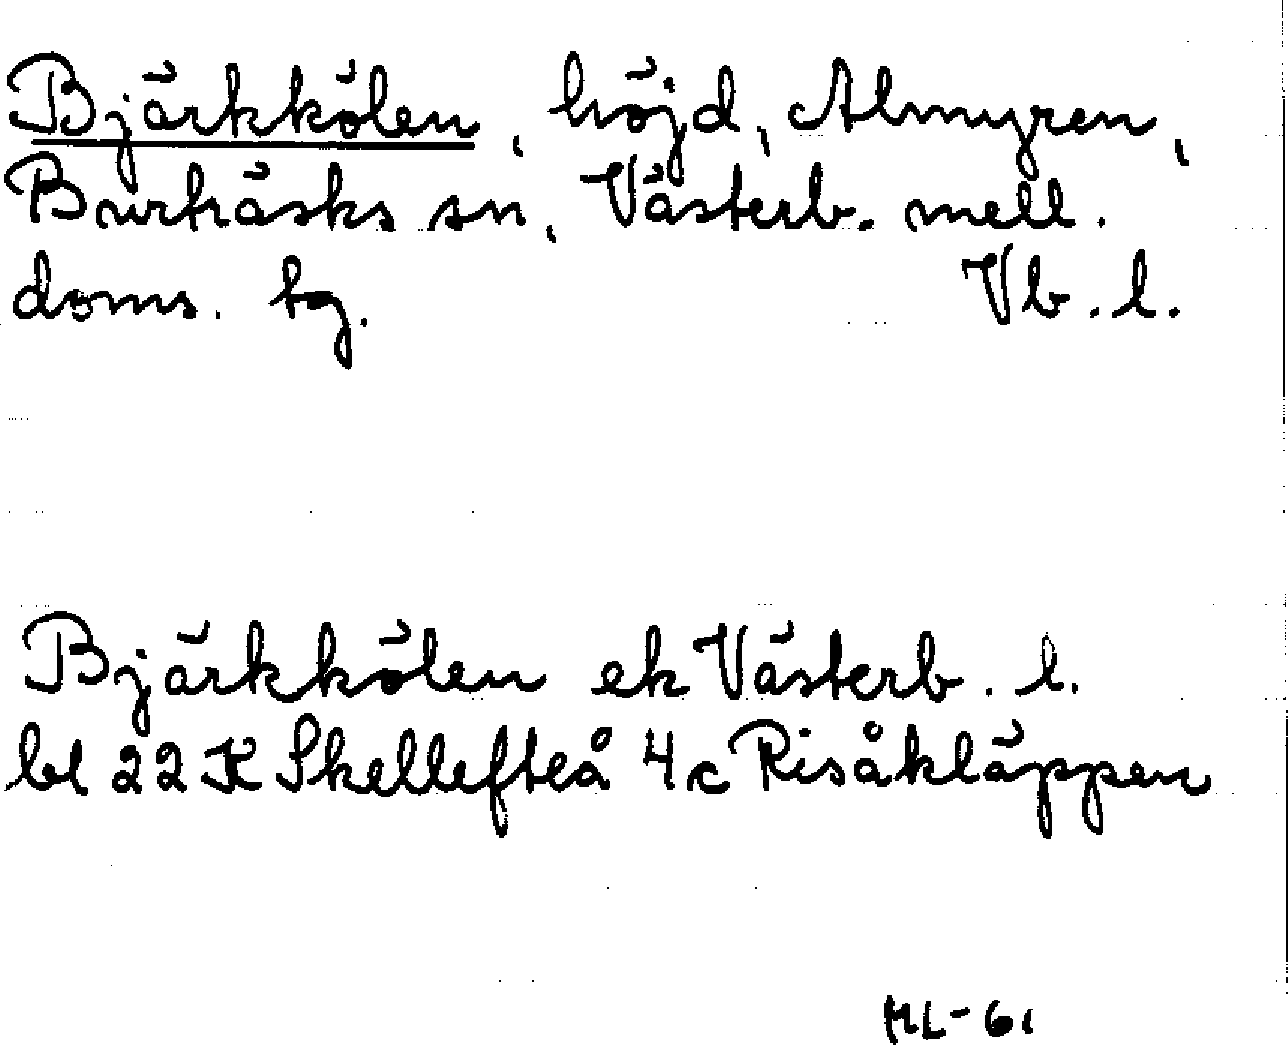 Bjärkkölen, höjd, Almyren,
Burträsks sn, Västerb. mell.
doms. tg. Vb. l.
Bjärkkölen ek Västerb. l.
bl 22 K Skellefteå 4 c Risåkläppen
ML-61